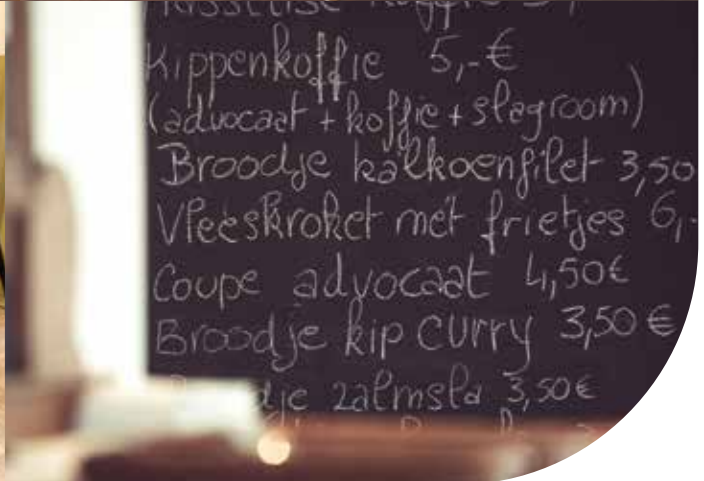 koffie
Kippenkoffie 5,-€
(advocaat + koffie + slagroom)
Broodje kalkoenfilet 3,50
Vleeskroket met frietjes 6,-
Coupe advocaat 4,50€
Broodje kip curry 3,50€
zalmsla 3,50€